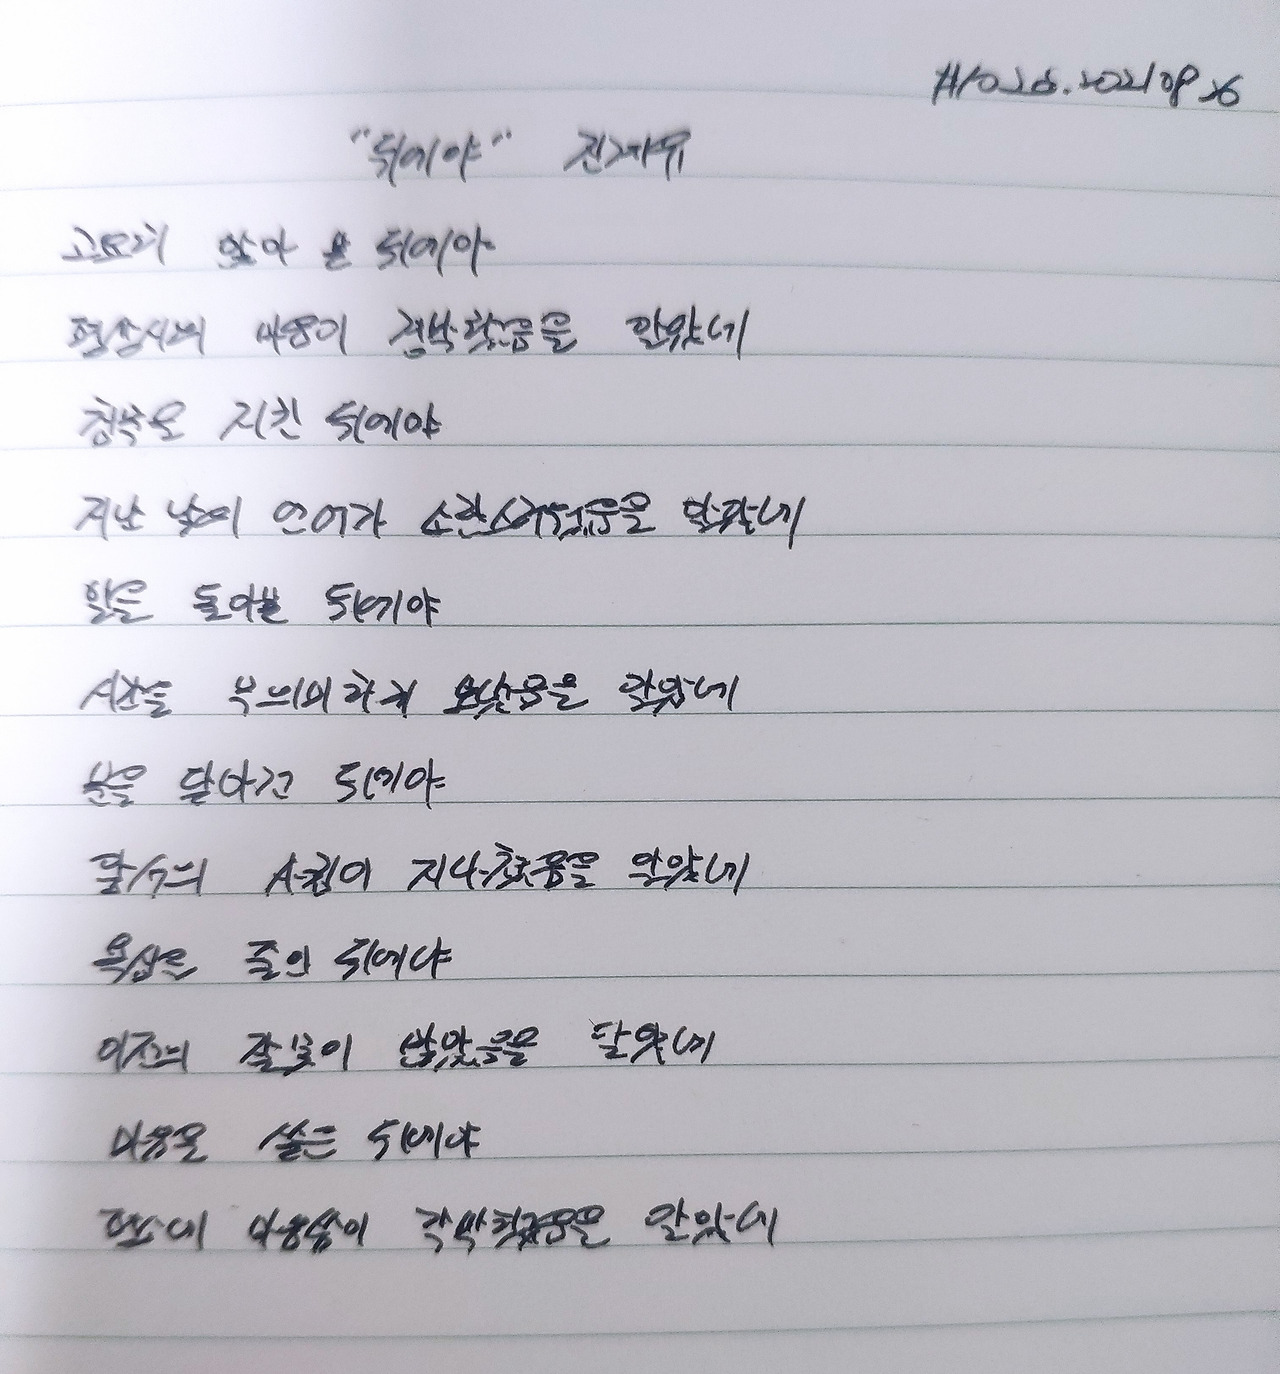 #1026. 20210826
"뒤에야" 진계유
고요히 앉아 본 뒤에야
평상시의 마음이 경박했음을 알았네
침묵을 지킨 뒤에야
지난 날의 언어가 소란스러웠음을 알았네
일을 돌아본 뒤에야
시간을 무의미하게 보냈음을 알았네
문을 닫아건 뒤에야
앞서의 사귐이 지나쳤음을 알았네
욕심을 줄인 뒤에야
이전의 잘못이 많았음을 알았네
마음을 쏟은 뒤에야
평소에 마음씀이 각박했음을 알았네